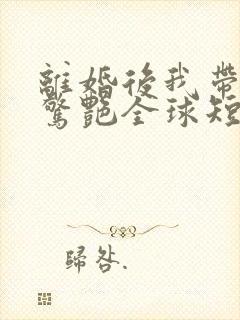 離婚後我帶
驚艷全球短
歸咎.